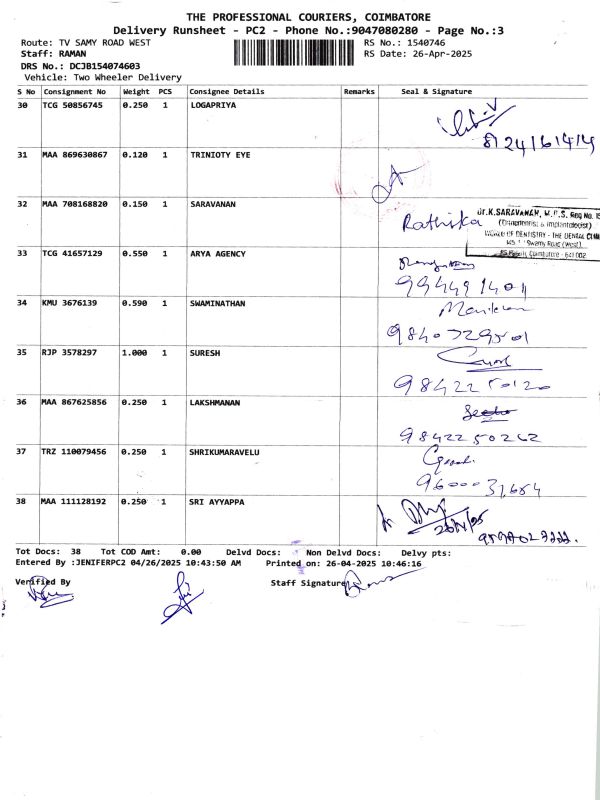 THE PROFESSIONAL COURIERS, COIMBATORE
Delivery Runsheet - PC2 - Phone No.:9047080280 - Page No.:3
Route: TV SAMY ROAD WEST RS No.: 1540746
Staff: RAMAN RS Date: 26-Apr-2025
DRS No.: DCJB154074603
Vehicle: Two Wheeler Delivery
S No Consignment No Weight PCS Consignee Details Remarks Seal & Signature
30 TCG 50856745 0.250 1 LOGAPRIYA
31 MAA 869630867 0.120 1 TRINIOTY EYE
32 MAA 708168820 0.150 1 SARAVANAN Rathika
Dr.K.SARAVANAN, M.D.S. Reg No. 15
(Orthodontist & Implantologist)
WORLD OF DENTISTRY - THE DENTAL CLINI
Swamy Road (West),
Coimbatore - 641 002
33 TCG 41657129 0.550 1 ARYA AGENCY
994491401
34 KMU 3676139 0.590 1 SWAMINATHAN
9840729501
35 RJP 3578297 1.000 1 SURESH
9842250120
36 MAA 867625856 0.250 1 LAKSHMANAN
9842250262
37 TRZ 110079456 0.250 1 SHRIKUMARAVELU
9600031,684
38 MAA 111128192 0.250 1 SRI AYYAPPA
26/4/25
Tot Docs: 38 Tot COD Amt: 0.00 Delvd Docs: Non Delvd Docs: Delvy pts:
Entered By :JENIFERPC2 04/26/2025 10:43:50 AM Printed on: 26-04-2025 10:46:16
Verified By Staff Signature